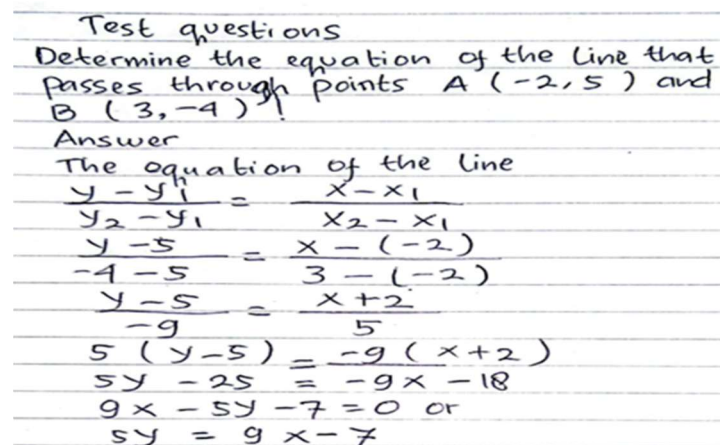 Test questions
Determine the equation of the line that
passes through points A (-2,5) and
B (3,-4)!
Answer
The oquation of the line
y - y1 / y2 - y1 = x - x1 / x2 - x1
y - 5 / -4 - 5 = x - (-2) / 3 - (-2)
y - 5 / -9 = x + 2 / 5
5 (y - 5) = -9 (x + 2)
5y - 25 = -9x - 18
9x - 5y - 7 = 0 or
5y = 9x - 7